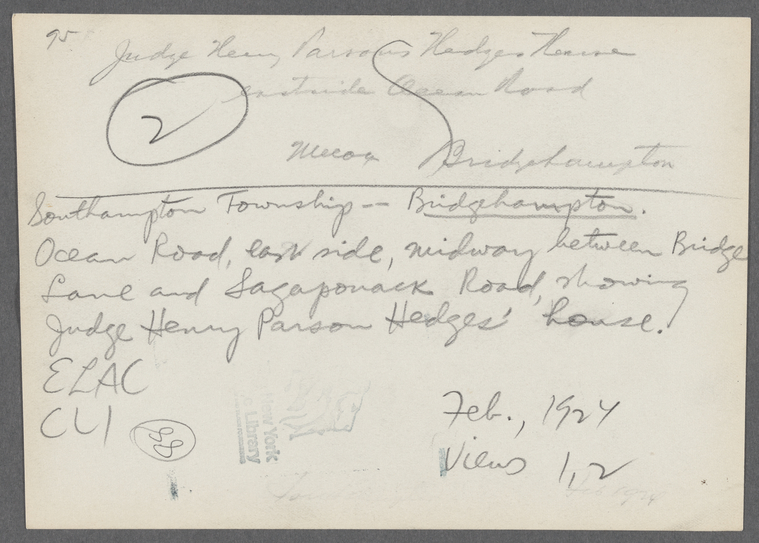 95
Judge Henry Parsons Hedges House
eastside Ocean Road
2
Mecox Bridgehampton
Southampton Township -- Bridgehampton.
Ocean Road, east side, midway between Bridge
Lane and Sagaponack Road, showing
Judge Henry Parson Hedges' house.
ELAC
CLI
Feb., 1924
Views 1,2
New York
Library